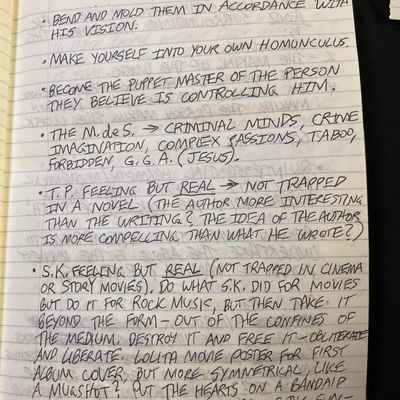 • BEND AND MOLD THEM IN ACCORDANCE WITH
HIS VISION.
• MAKE YOURSELF INTO YOUR OWN HOMUNCULUS.
• BECOME THE PUPPET MASTER OF THE PERSON
THEY BELIEVE IS CONTROLLING HIM.
• THE M. de S. → CRIMINAL MINDS, CRIME
IMAGINATION, COMPLEX PASSIONS, TABOO,
FORBIDDEN, G.G.A. (JESUS).
• T.P. FEELING BUT REAL → NOT TRAPPED
IN A NOVEL (THE AUTHOR MORE INTERESTING
THAN THE WRITING? THE IDEA OF THE AUTHOR
IS MORE COMPELLING THAN WHAT HE WROTE?)
• S.K. FEELING BUT REAL (NOT TRAPPED IN CINEMA
OR STORY MOVIES). DO WHAT S.K. DID FOR MOVIES
BUT DO IT FOR ROCK MUSIC, BUT THEN TAKE IT
BEYOND THE FORM - OUT OF THE CONFINES OF
THE MEDIUM. DESTROY IT AND FREE IT - OBLITERATE
AND LIBERATE. LOLITA MOVIE POSTER FOR FIRST
ALBUM COVER, BUT MORE SYMMETRICAL, LIKE
A MUGSHOT? PUT THE HEARTS ON A BANDAID